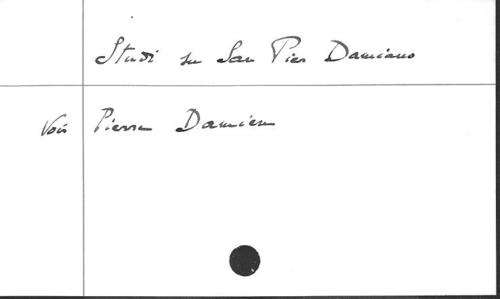 Studi su San Pier Damiano
Voir Pierre Damien